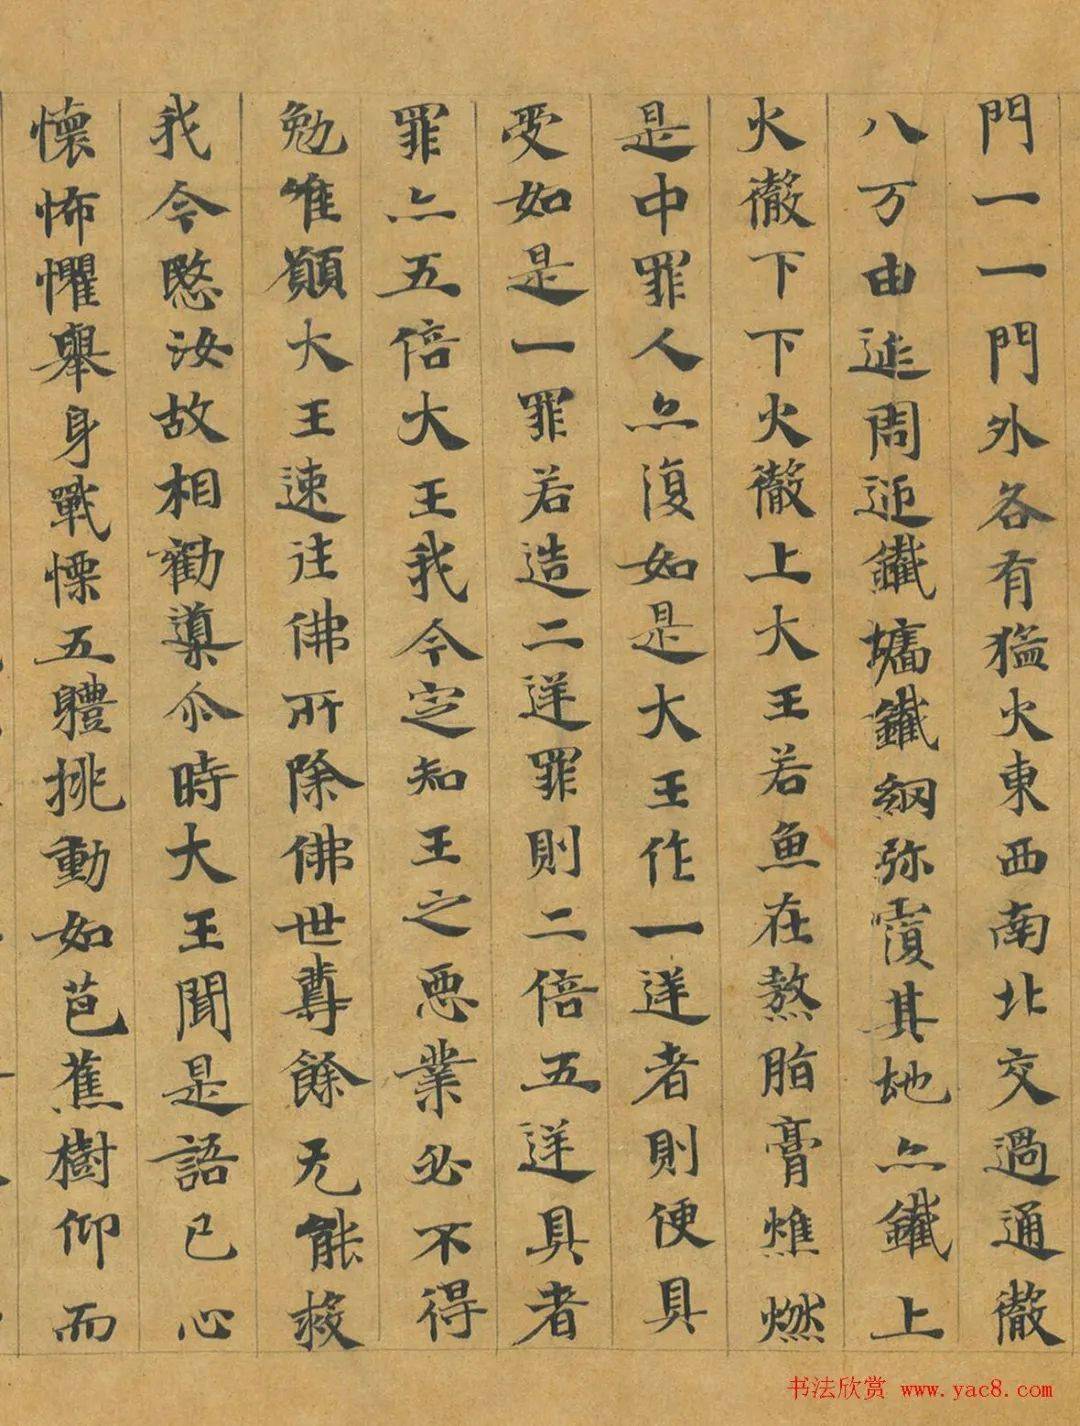 門一一門外各有猛火東西南北交過通徹
八万由延周迊鐵墻鐵網弥覆其地亦鐵上
火徹下下火徹上大王若魚在熬脂膏燋燃
是中罪人亦復如是大王作一逆者則便具
受如是一罪若造二逆罪則二倍五逆具者
罪亦五倍大王我今定知王之恶業必不得
勉唯願大王速往佛所除佛世尊餘无能救
我今愍汝故相勸導尒時大王聞是語已心
懷怖懼舉身戰慄五體挑動如芭蕉樹仰而
书法欣赏 www.yac8.com